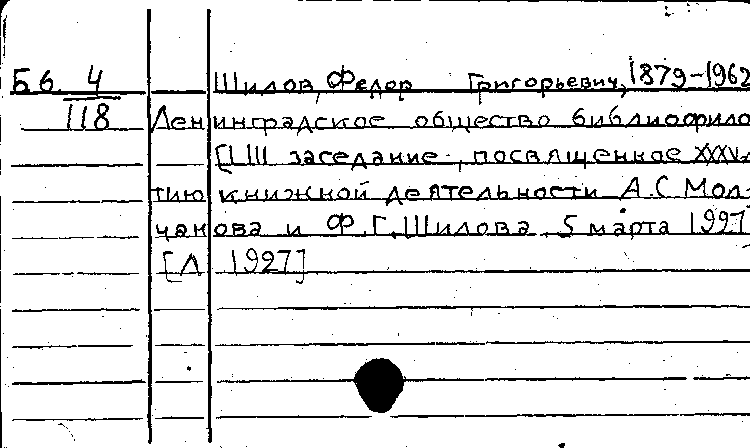 Б6 4/118 Шилов, Федор Григорьевич, 1879-1962
Ленинградское общество библиофило
[LIII заседание, посвященное XXXV-
тию книжной деятельности А.С Мол-
чанова и Ф.Г.Шилова. 5 марта 1927
[Л 1927]